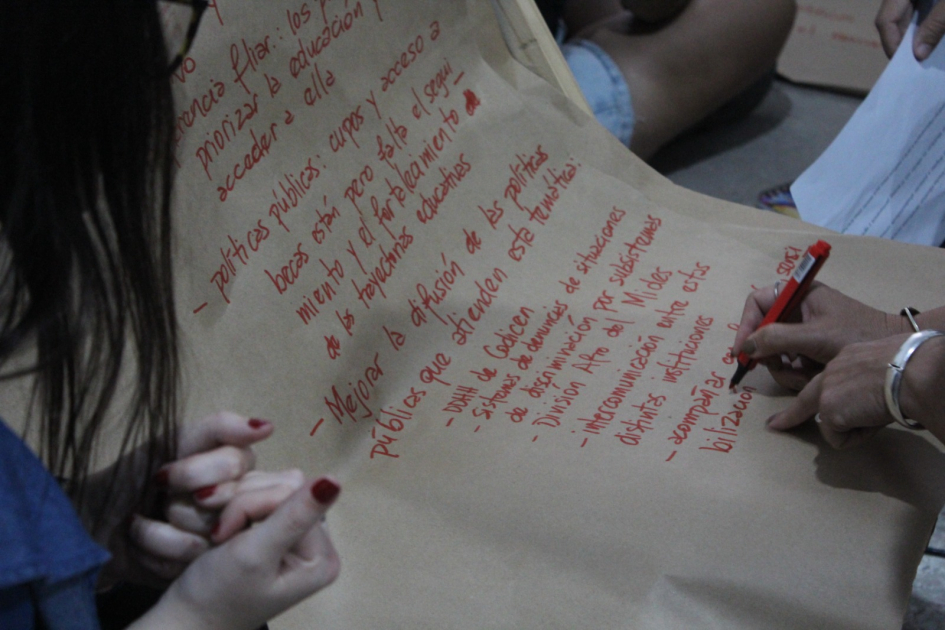 erencia afiar.: los
priorizar la educación y
acceder a ella
- políticas públicas: cupos y acceso a
becas están pero falta el segui
miento y el fortalecimiento de
de los trayectos educativos
- Mejorar la difusión de las políticas
públicas que atienden esta temática:
- DDHH de Codicen
- sistemas de denuncias de situaciones
de discriminación por subsistemas
- División Afro del Mides
- intercomunicación entre estas
distintas instituciones
- acompañar sensi
bilización